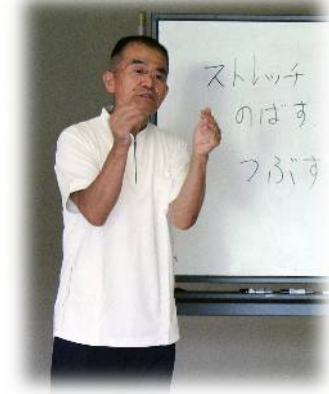 ストレッチ
のばす
つぶす